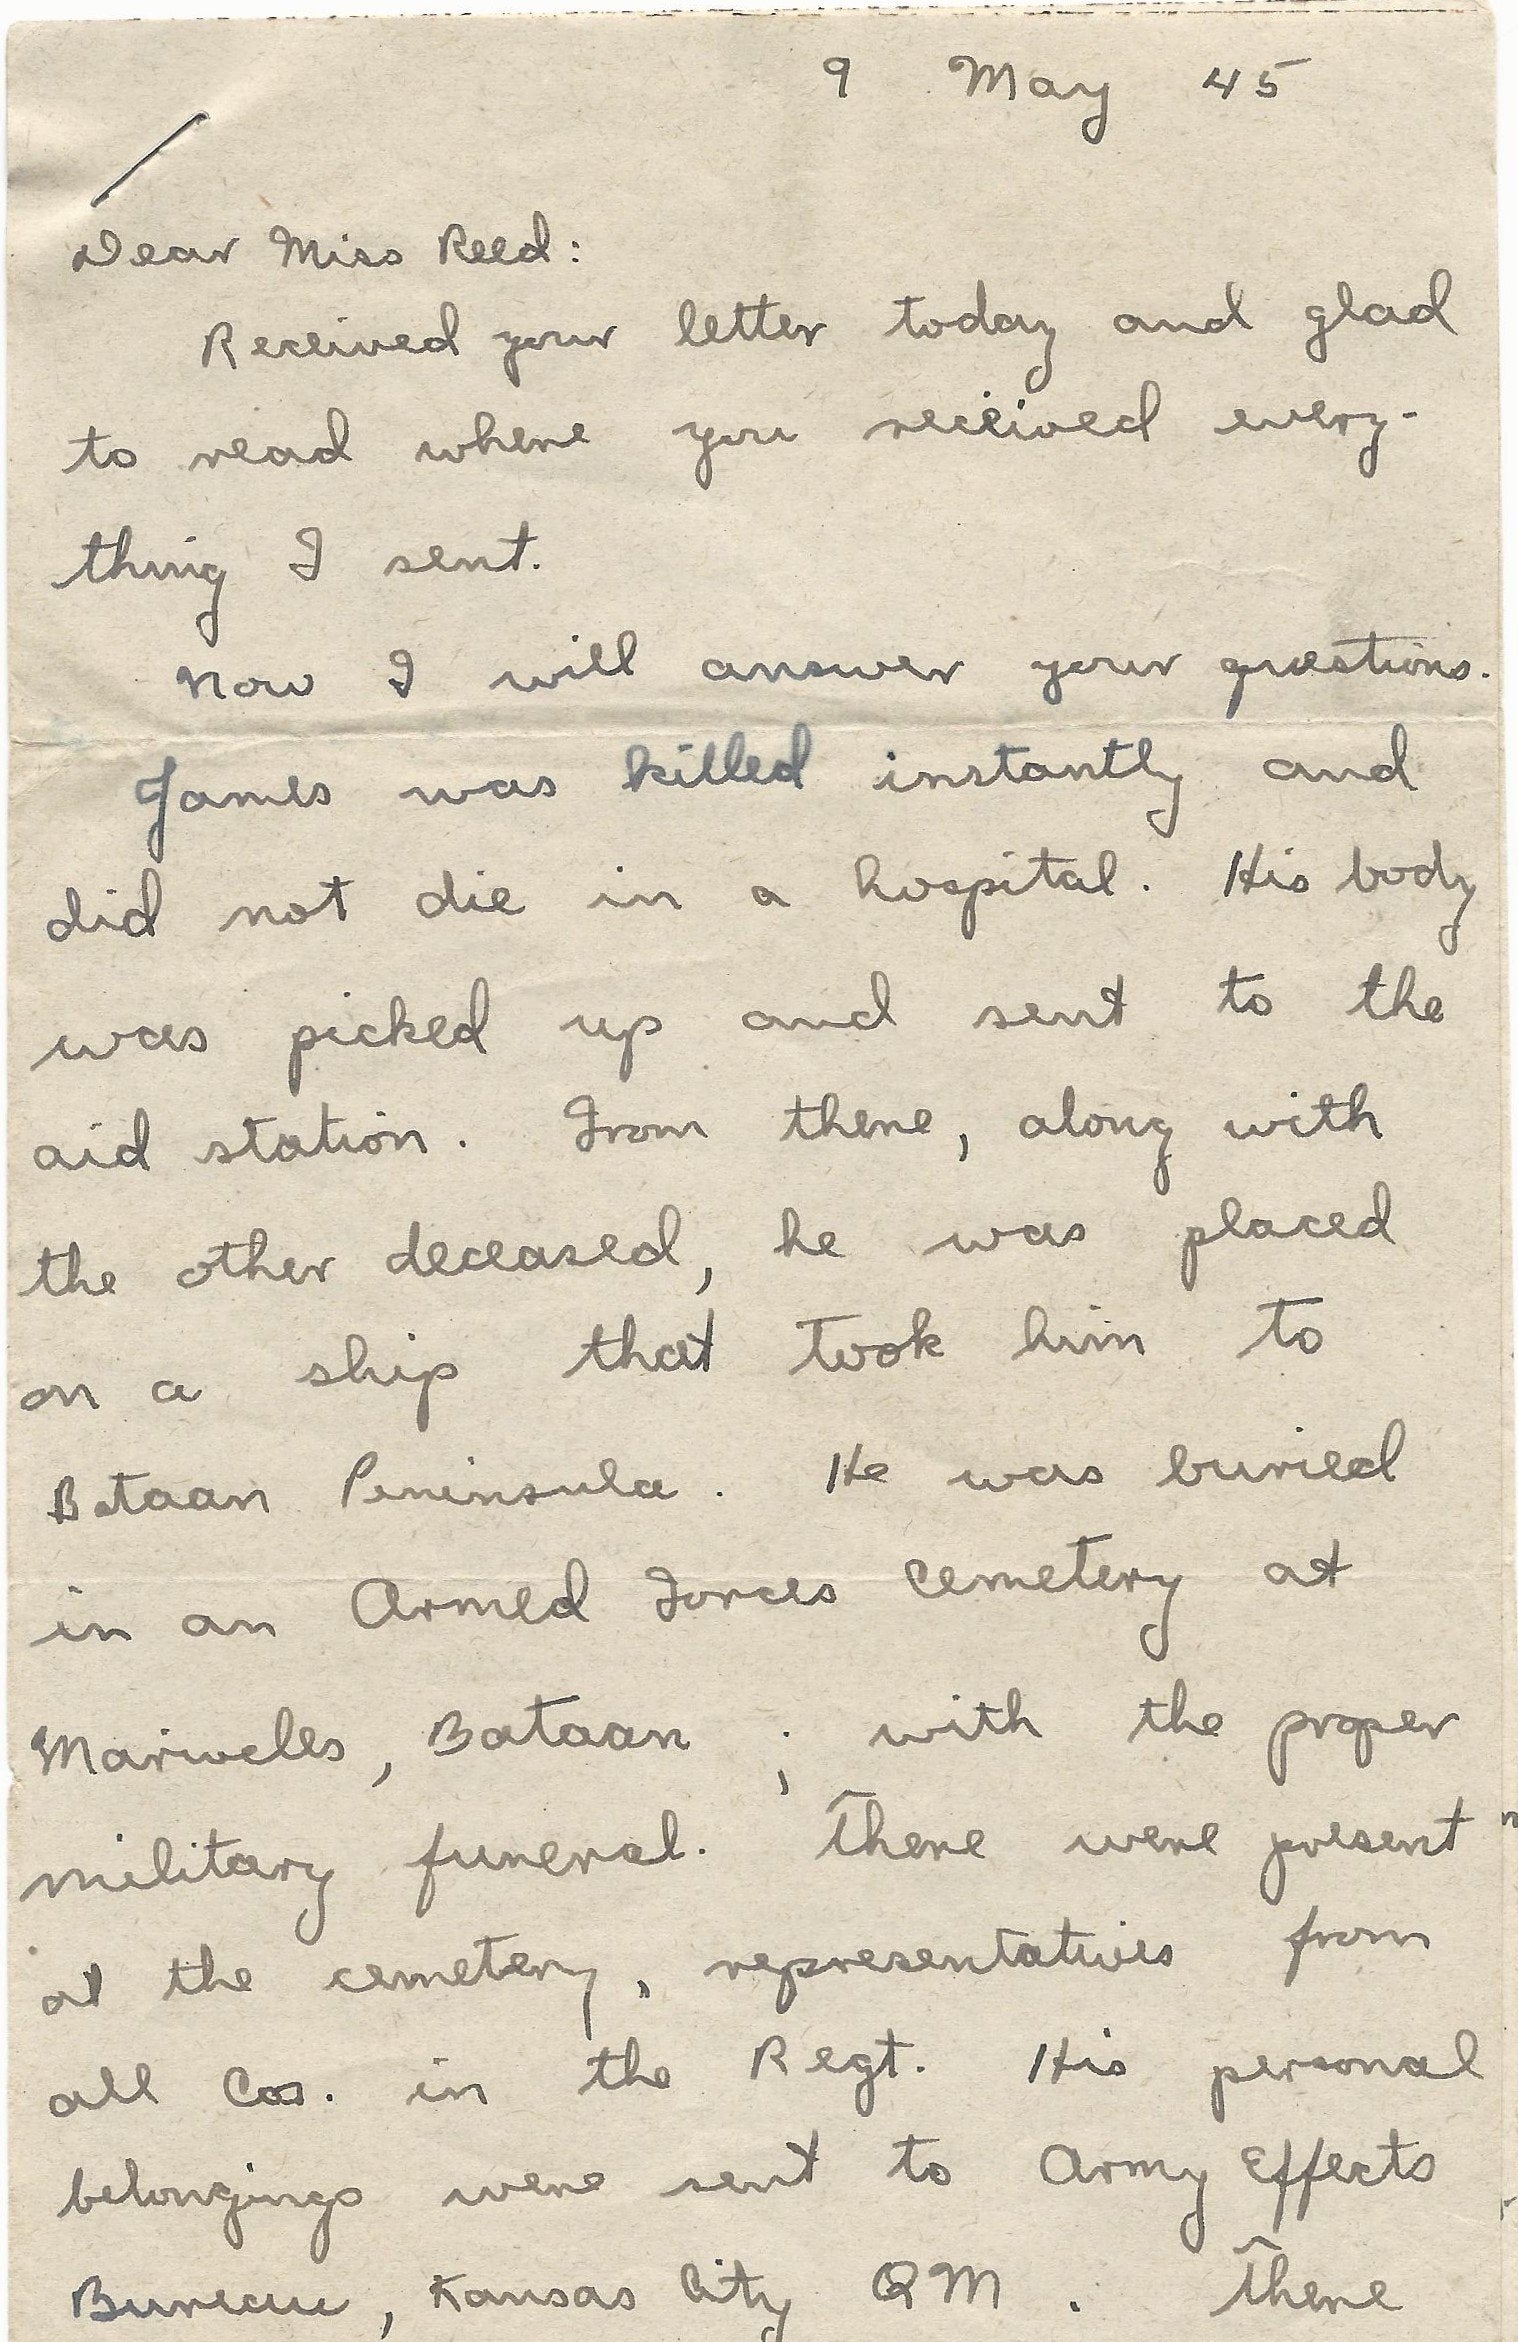 9 May 45
Dear Miss Reed:
Received your letter today and glad
to read where you received every-
thing I sent.
Now I will answer your questions.
James was killed instantly and
did not die in a hospital. His body
was picked up and sent to the
aid station. From there, along with
the other deceased, he was placed
on a ship that took him to
Bataan Peninsula. He was buried
in an Armed Forces Cemetery at
Mariveles, Bataan ; with the proper
military funeral. There were present
at the cemetery, representatives from
all Cos. in the Regt. His personal
belongings were sent to Army Effects
Bureau, Kansas City QM. There